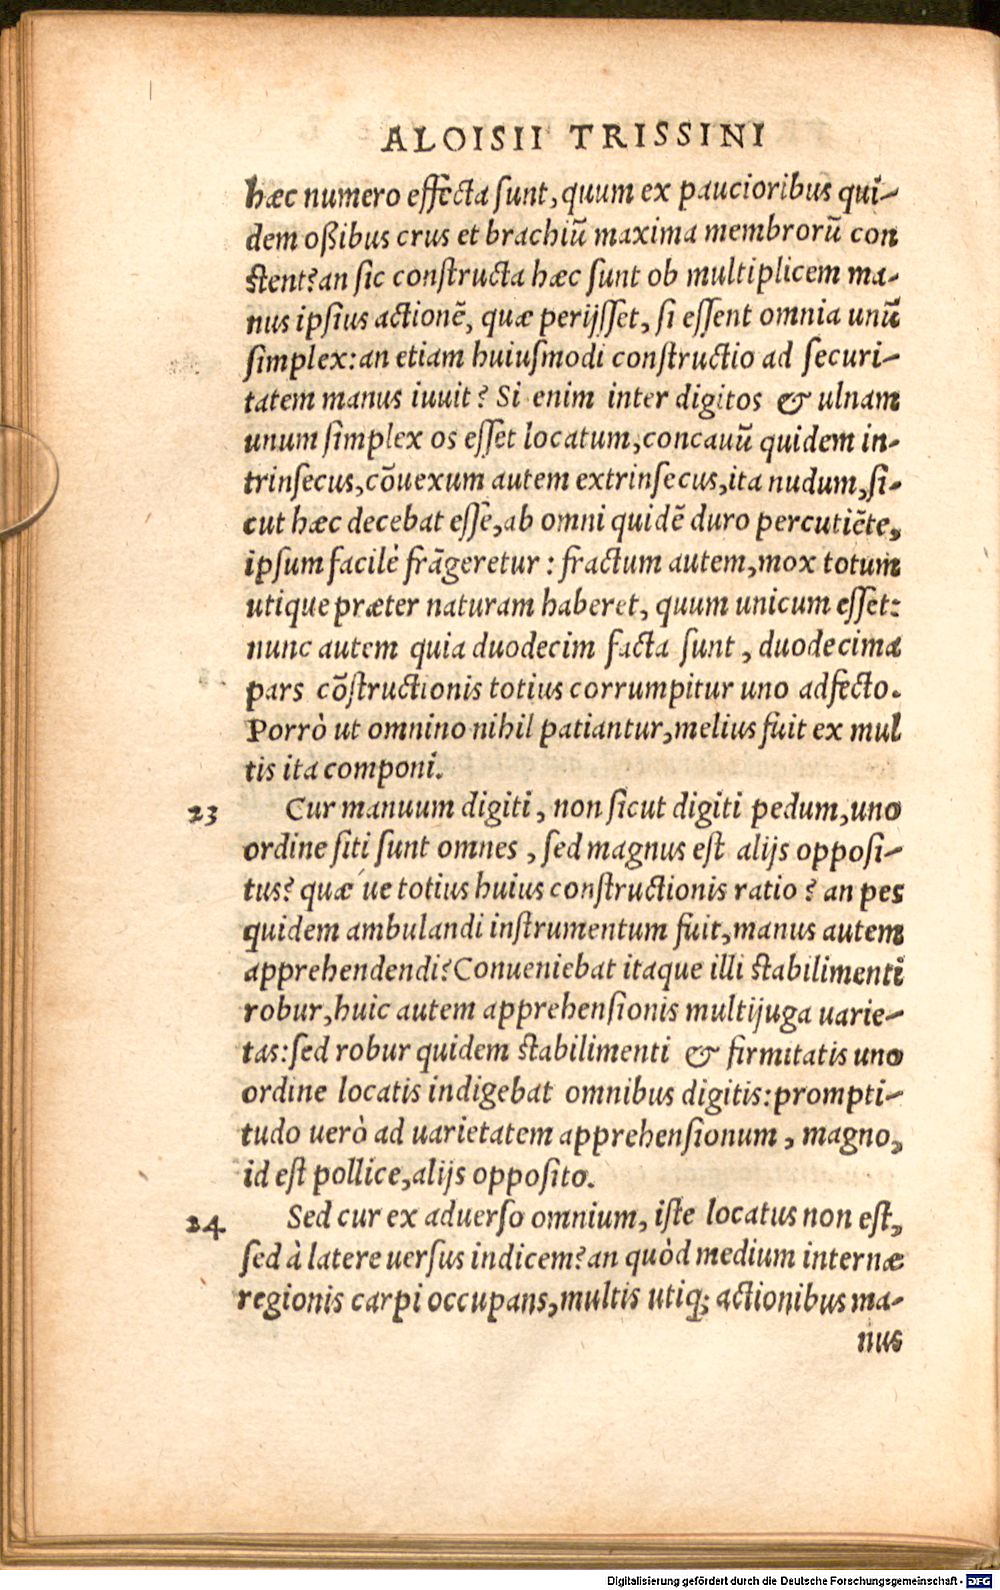 ALOISII TRISSINI
hæc numero effecta ſunt, quum ex paucioribus qui-
dem oßibus crus et brachiū maxima membrorū con
ſtent? an ſic conſtructa hæc ſunt ob multiplicem ma-
nus ipſius actionē, quæ perijſſet, ſi eſſent omnia unū
ſimplex: an etiam huiuſmodi conſtructio ad ſecuri-
tatem manus iuuit? Si enim inter digitos & ulnam
unum ſimplex os eſſet locatum, concauū quidem in-
trinſecus, cōuexum autem extrinſecus, ita nudum, ſi-
cut hæc decebat eſſe, ab omni quidē duro percutiēte,
ipſum facilè frāgeretur: fractum autem, mox totum
utique præter naturam haberet, quum unicum eſſet:
nunc autem quia duodecim facta ſunt, duodecima
pars cōſtructionis totius corrumpitur uno adfecto.
Porrò ut omnino nihil patiantur, melius fuit ex mul
tis ita componi.
23 Cur manuum digiti, non ſicut digiti pedum, uno
ordine ſiti ſunt omnes, ſed magnus eſt alijs oppoſi-
tus? quæ ue totius huius conſtructionis ratio? an pes
quidem ambulandi inſtrumentum fuit, manus autem
apprehendendi? Conueniebat itaque illi ſtabilimenti
robur, huic autem apprehenſionis multijuga uarie-
tas: ſed robur quidem ſtabilimenti & firmitatis uno
ordine locatis indigebat omnibus digitis: prompti-
tudo uerò ad uarietatem apprehenſionum, magno,
id eſt pollice, alijs oppoſito.
24 Sed cur ex aduerſo omnium, iſte locatus non eſt,
ſed à latere uerſus indicem? an quòd medium internæ
regionis carpi occupans, multis utiq; actionibus ma-
nus
Digitalisierung gefördert durch die Deutsche Forschungsgemeinschaft - DFG